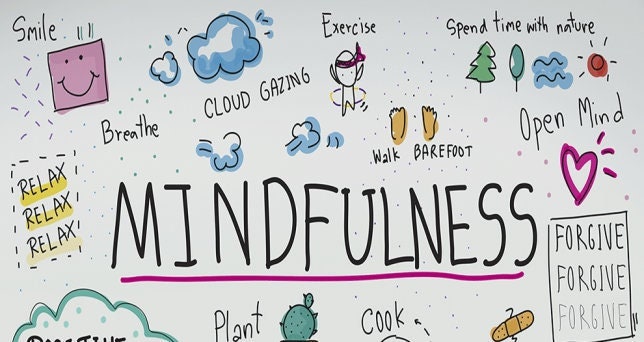 Smile
Exercise
Spend time with nature
CLOUD GAZING
Breathe
Open Mind
Walk BAREFOOT
RELAX
RELAX
RELAX
MINDFULNESS
FORGIVE
FORGIVE
FORGIVE
Plant
Cook